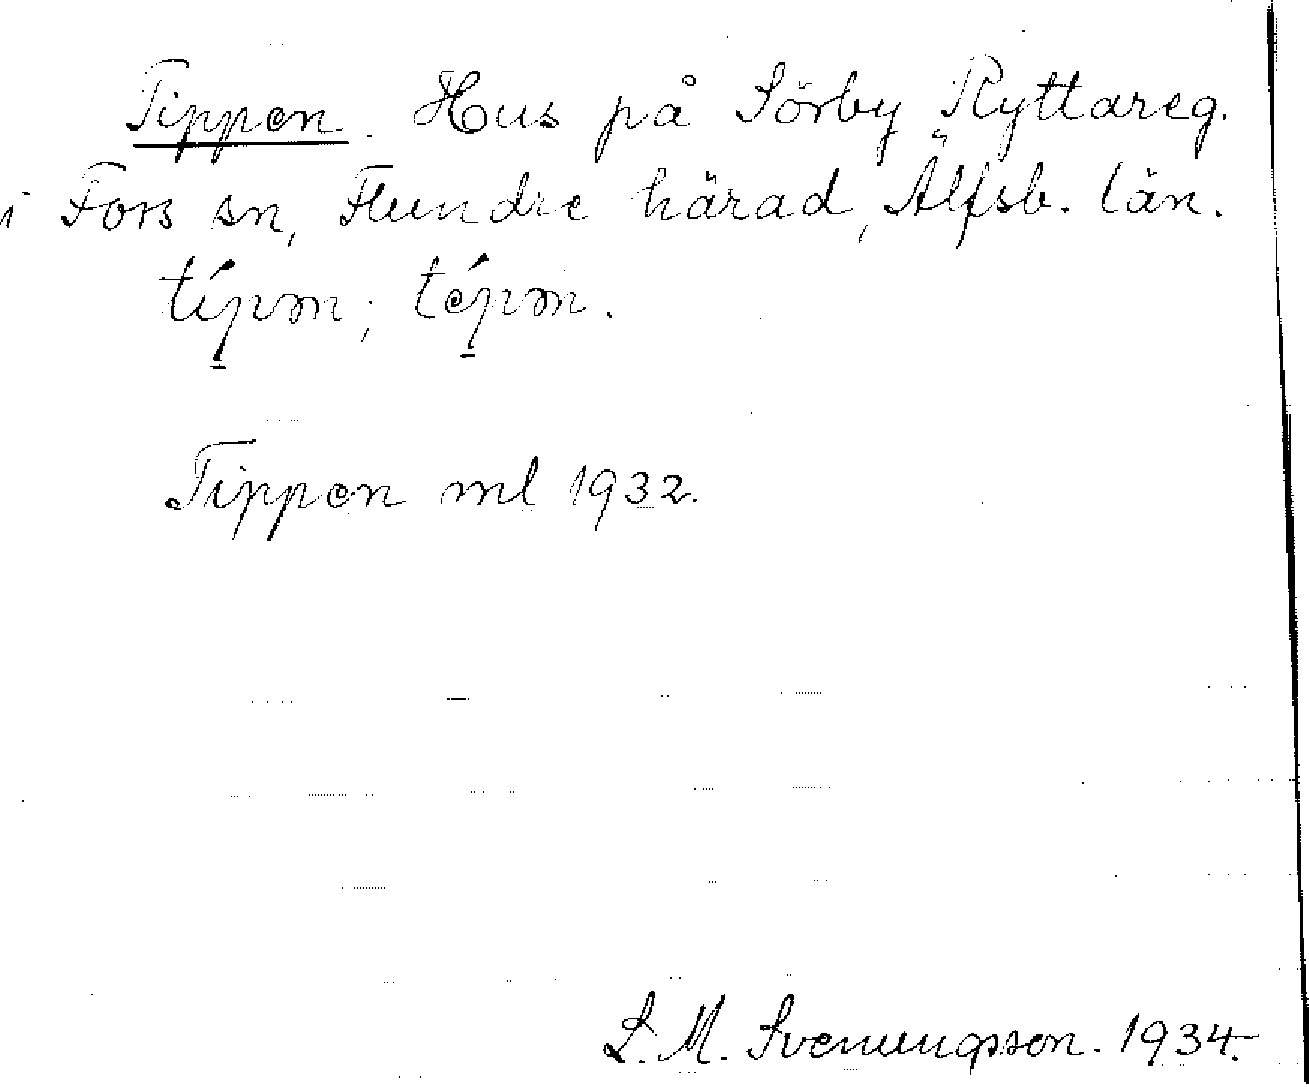 Tippen. Hus på Sörby Ryttareg.
i Fors sn, Flundre härad, Älfsb. län.
típm; tépm.
Tippen ml 1932.
S. M. Svenungsson. 1934.